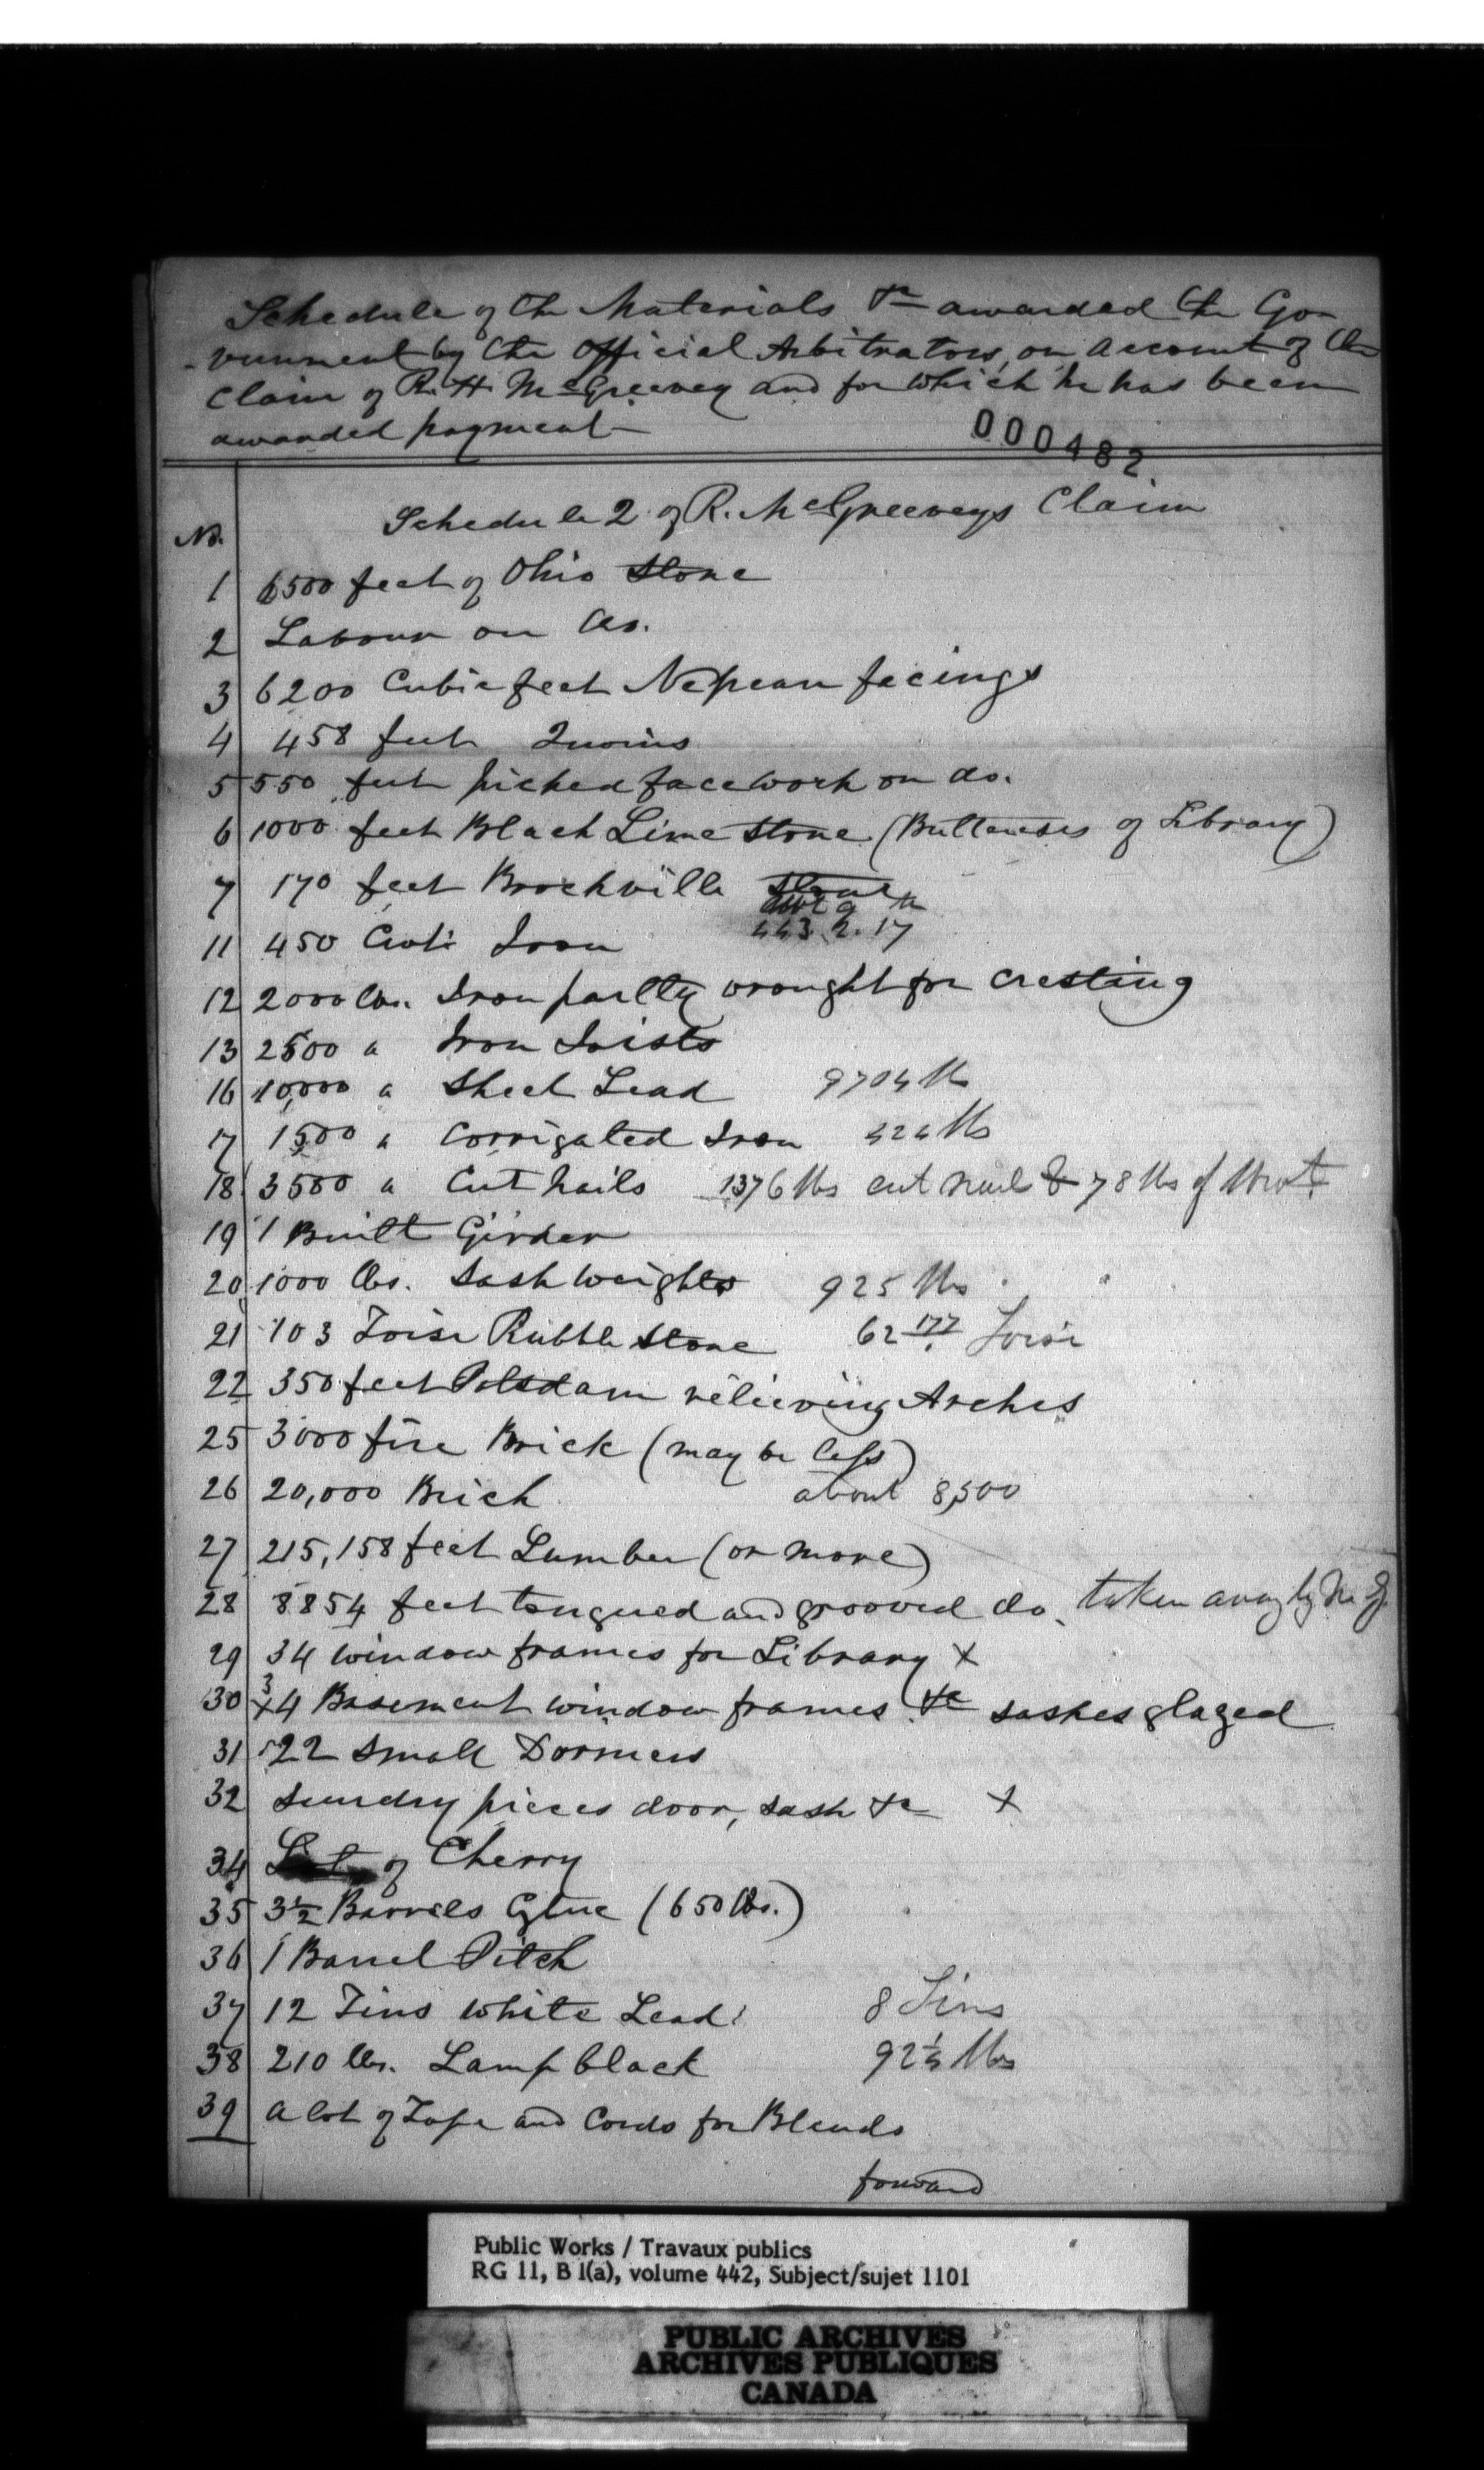 Schedule of the Materials &c awarded the Go-
-vernment by the Official Arbitrators, on account of the
Claim of R. H McGreevey and for which he has been
awarded payment
000482
Schedule 2 of R. McGreeveys Claim
No.
1 6500 feet of Ohio Stone
2 Labour on do.
3 6200 Cubic feet Nepean facings
4 458 feet Quoins
5 550 feet picked face work on do.
6 1000 feet Black Lime Stone (Buttresses of Library)
7 170 feet Brockville Stone
cwt q lb
11 450 Cwt: Iron 443. 2. 17
12 2000 lbs. Iron partly wrought for cresting
13 2500 " Iron Joists
16 10,000 " Sheet Lead 9704 lbs
17 1500 " Corrigated Iron 424 lbs
18 3500 " Cut nails 1376 lbs cut nails & 78 lbs of Wrot
19 1 Built Girder
20 1000 lbs. Sash weights 925 lbs
21 103 Toise Rubble Stone 62 177 Toise
22 350 feet Potsdam relieving Arches
25 3000 fire Brick (may be less)
26 20,000 Brick about 8,500
27 215,158 feet Lumber (or more)
28 8854 feet tongued and grooved do. taken away by Mc G.
29 34 window frames for Library X
30 34 Basement window frames &c sashes glazed
31 22 Small Dormers
32 Sundry pieces door, sash &c X
34 Lot of Cherry
35 3½ Barrels Glue (650 lbs.)
36 1 Barrel Pitch
37 12 Tins White Lead 8 Tins
38 210 lbs. Lamp black 92½ lbs
39 A lot of Tape and Cords for Blends
forward
Public Works / Travaux publics
RG 11, B 1(a), volume 442, Subject/sujet 1101
PUBLIC ARCHIVES
ARCHIVES PUBLIQUES
CANADA